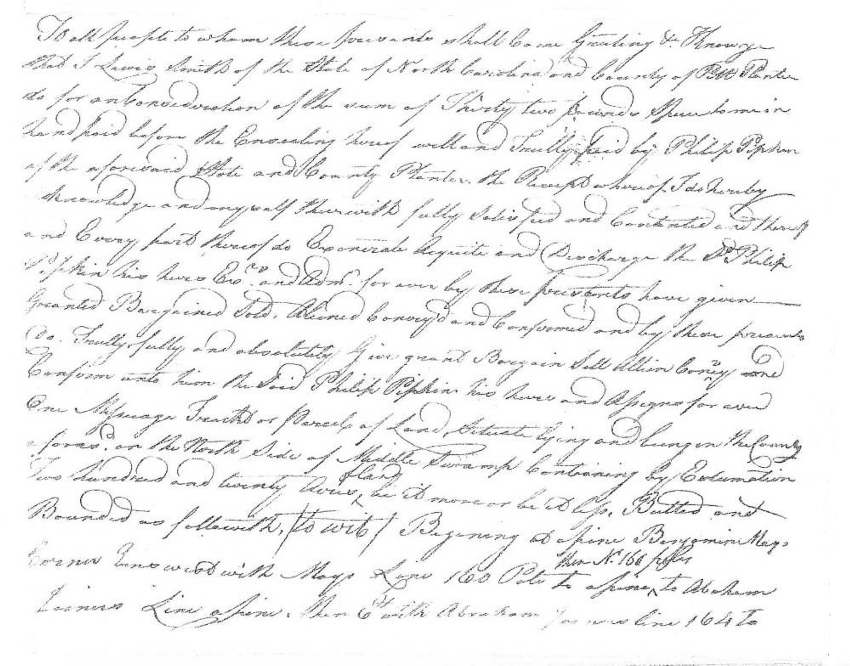 To all people to whom these presents shall Come Greeting &c Know ye
that I Lewis Smith of the State of North Carolina and County of Pitt Planter
do for and Consideration of the sum of Thirty two pounds Specie to me in
hand paid before the Ensealing hereof well and Truly paid by Philip Pipkin
of the aforesaid State and County Planter the Receipt whereof I do hereby
Acknowledge and my self therwith fully Satisfied and Contented and thereof
and Every part thereof do Exonerate Acquite and Discharge the Sd. Philip
Pipkin his heirs Exrs. and Admr. for ever by these presents have given
Granted Bargained Sold, Aliened Convey'd and Confirmed and by these presents
do. Freely fully and absolutely Give grant Bargain Sell Allien Convey and
Conform unto him the Said Philip Pipkin his heirs and Assigns for ever
One Messuage Tract or Parcel of Land, Situate lying and being in the County
aforesd. on the North Side of Middle Swamp Containing by Estimation
Two hundred and twenty Acres, of land be it more or be it less. Butted and
Bounded as followeth, (to wit) Begining at a pine Benjamin Mays
Corner runs west with Mays Line 160 Pole to a pine, then N. 166 poles to Abraham
Joiners Line a pine. then Et. with Abraham Joiners line 164 To